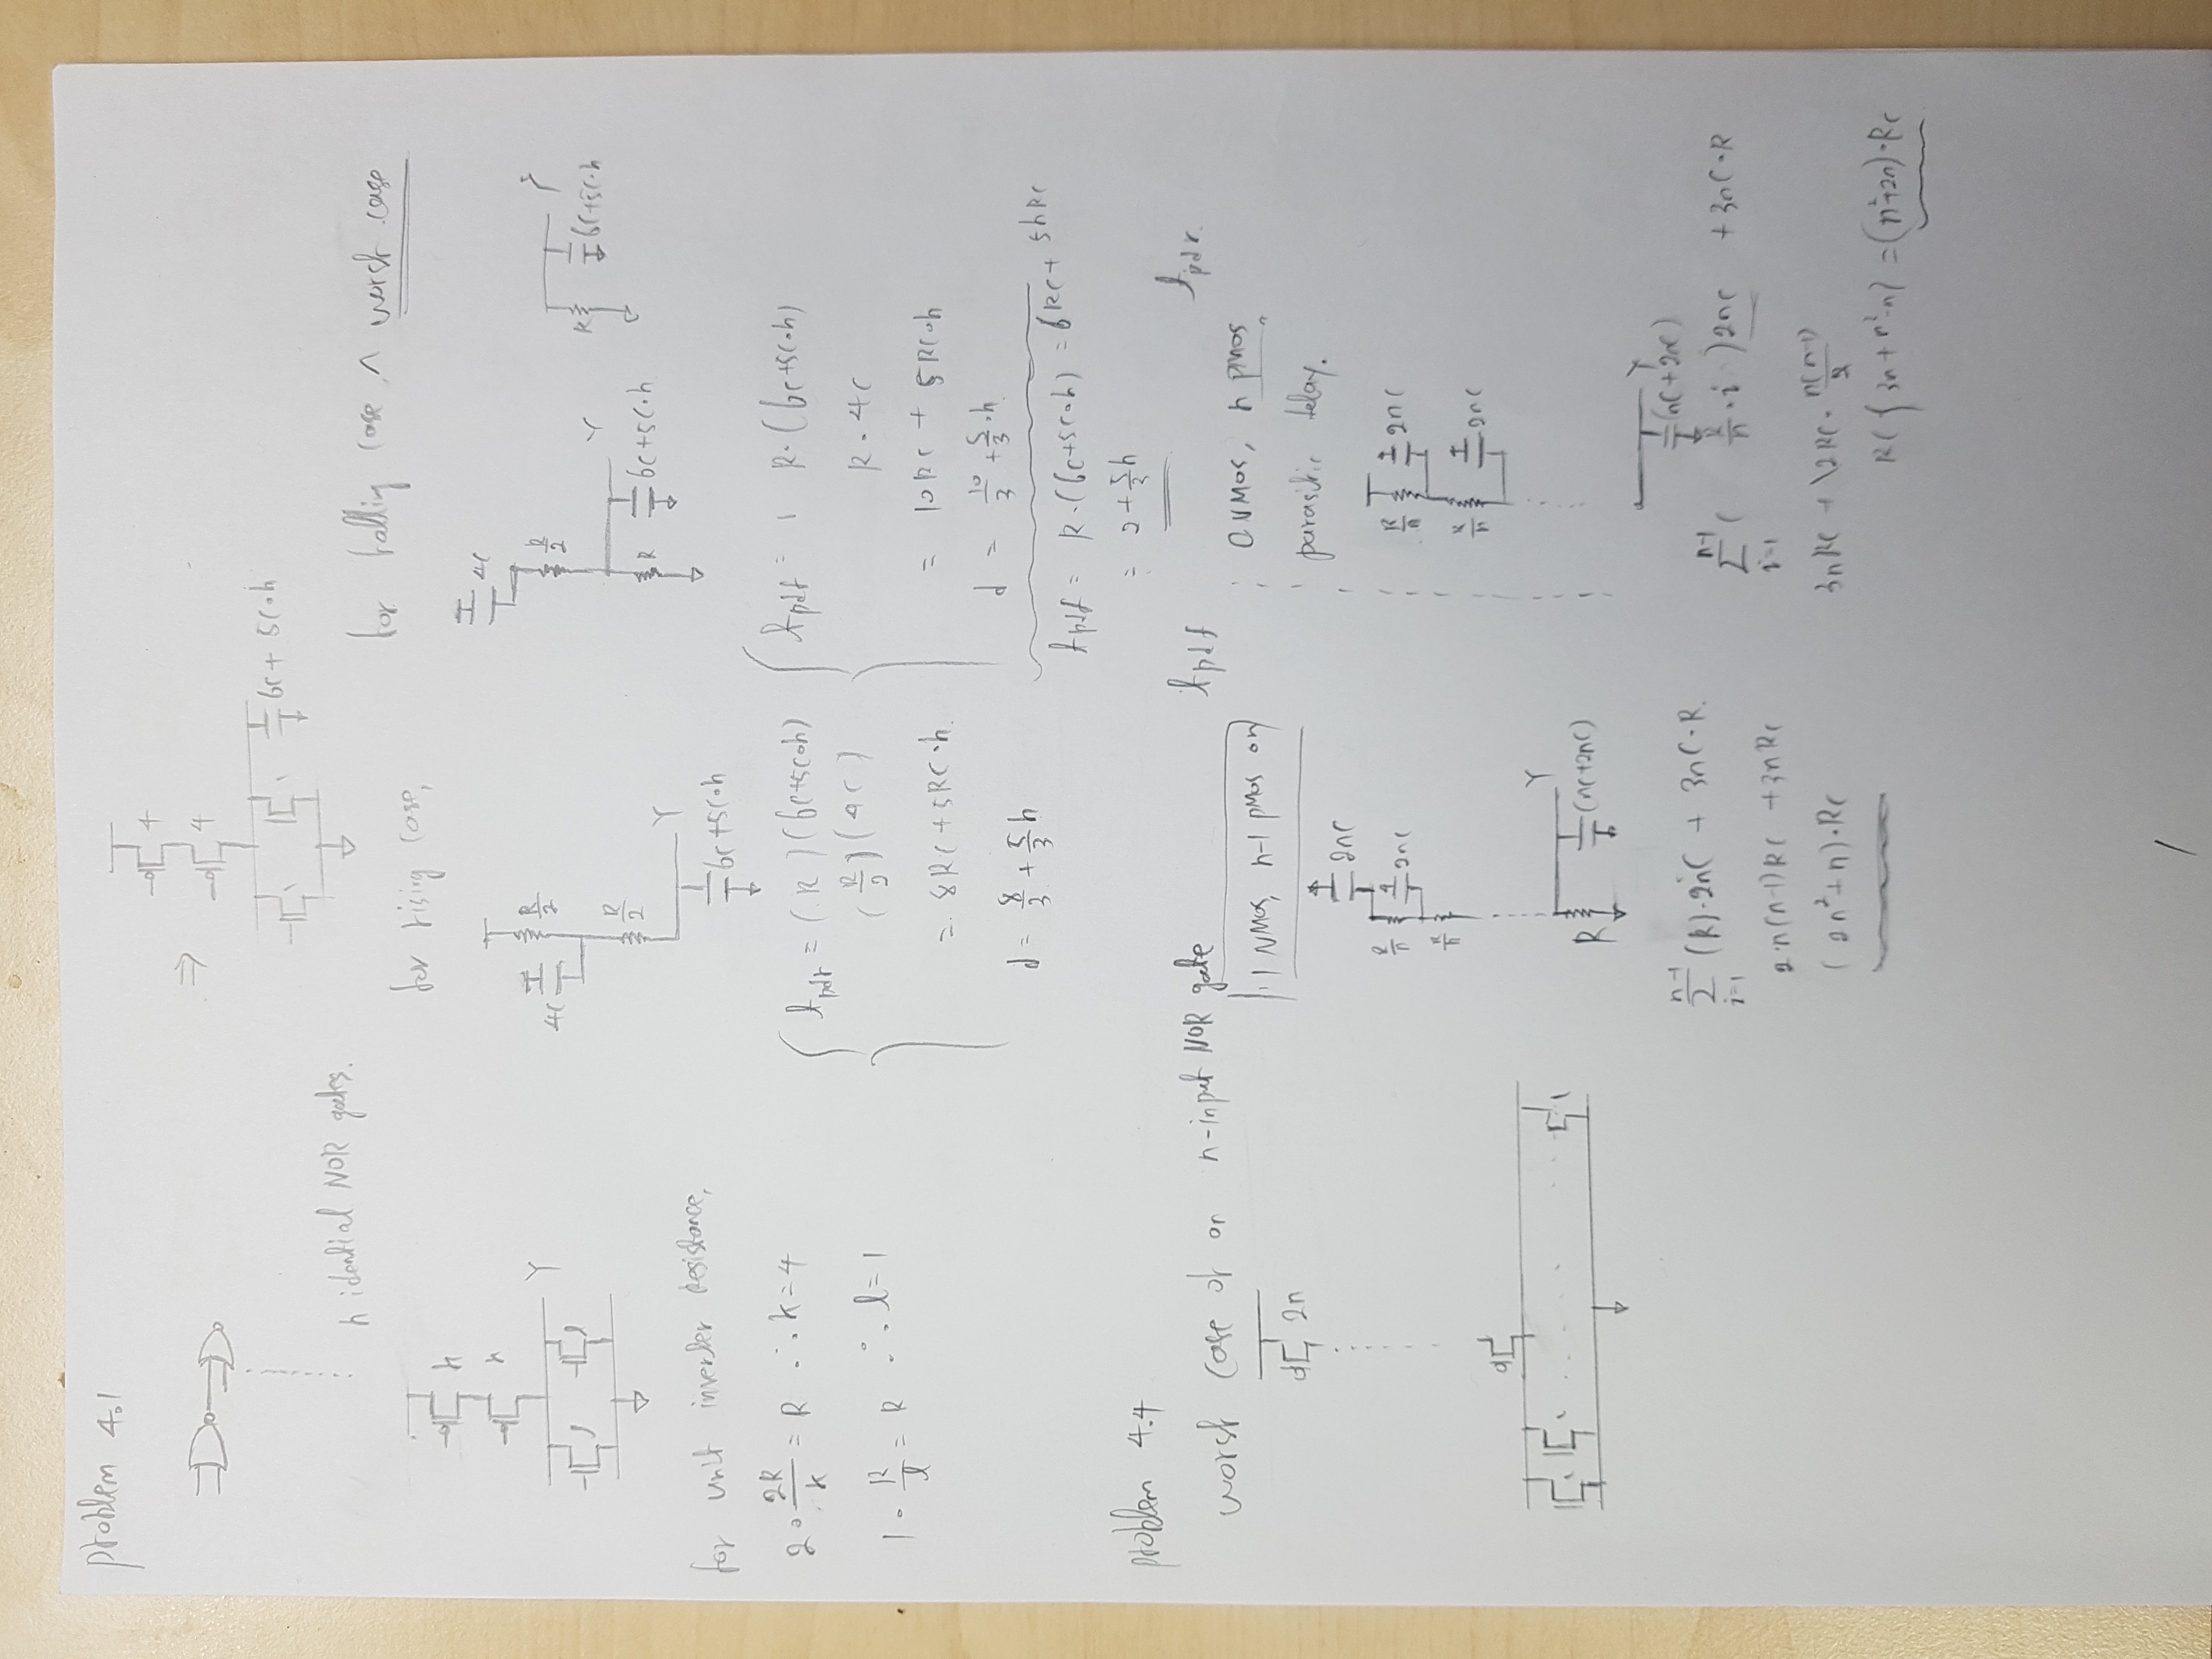 problem 4.1
⇒
4
4
6C + 5C·h
h idential NOR gates.
k
k
Y
l
l
for unit inverter resistance,
2·2R/k = R ∴ k=4
1·R/l = R ∴ l=1
for rising case,
4C
R/2
R/2
Y
6C+5C·h
tpdr = (R)(6C+5C·h)
(R/2)(4C)
= 8RC + 5RC·h.
d = 8/3 + 5/3 h
for falling case ^ worst case
4C
R/2
Y
R
6C+5C·h
Y
R
6C+5C·h
tpdf = R·(6C+5C·h)
R·4C
= 10RC + 5RC·h
d = 10/3 + 5/3·h
tpdf = R·(6C+5C·h) = 6RC + 5hRC
= 2 + 5/3 h
problem 4.4
worst case of an n-input NOR gate
2n
1
1
1
tpdf
1 NMOS, n-1 pMOS on
2nC
R/n
2nC
R/n
Y
R
(nC+2nC)
n-1 Σ i=1 (R)·2nC + 3nC·R.
2·n(n-1)RC + 3nRC
(2n²+n)·RC
tpdr.
0 NMOS, n pMOS
parasitic delay.
R/n
2nC
R/n
2nC
Y
(nC+2nC)
n-1 Σ i=1 (R/n·i)2nC + 3nC·R
3nRC + 2RC·n(n-1)/2
RC{3n+n²-n} = (n²+2n)·RC
1